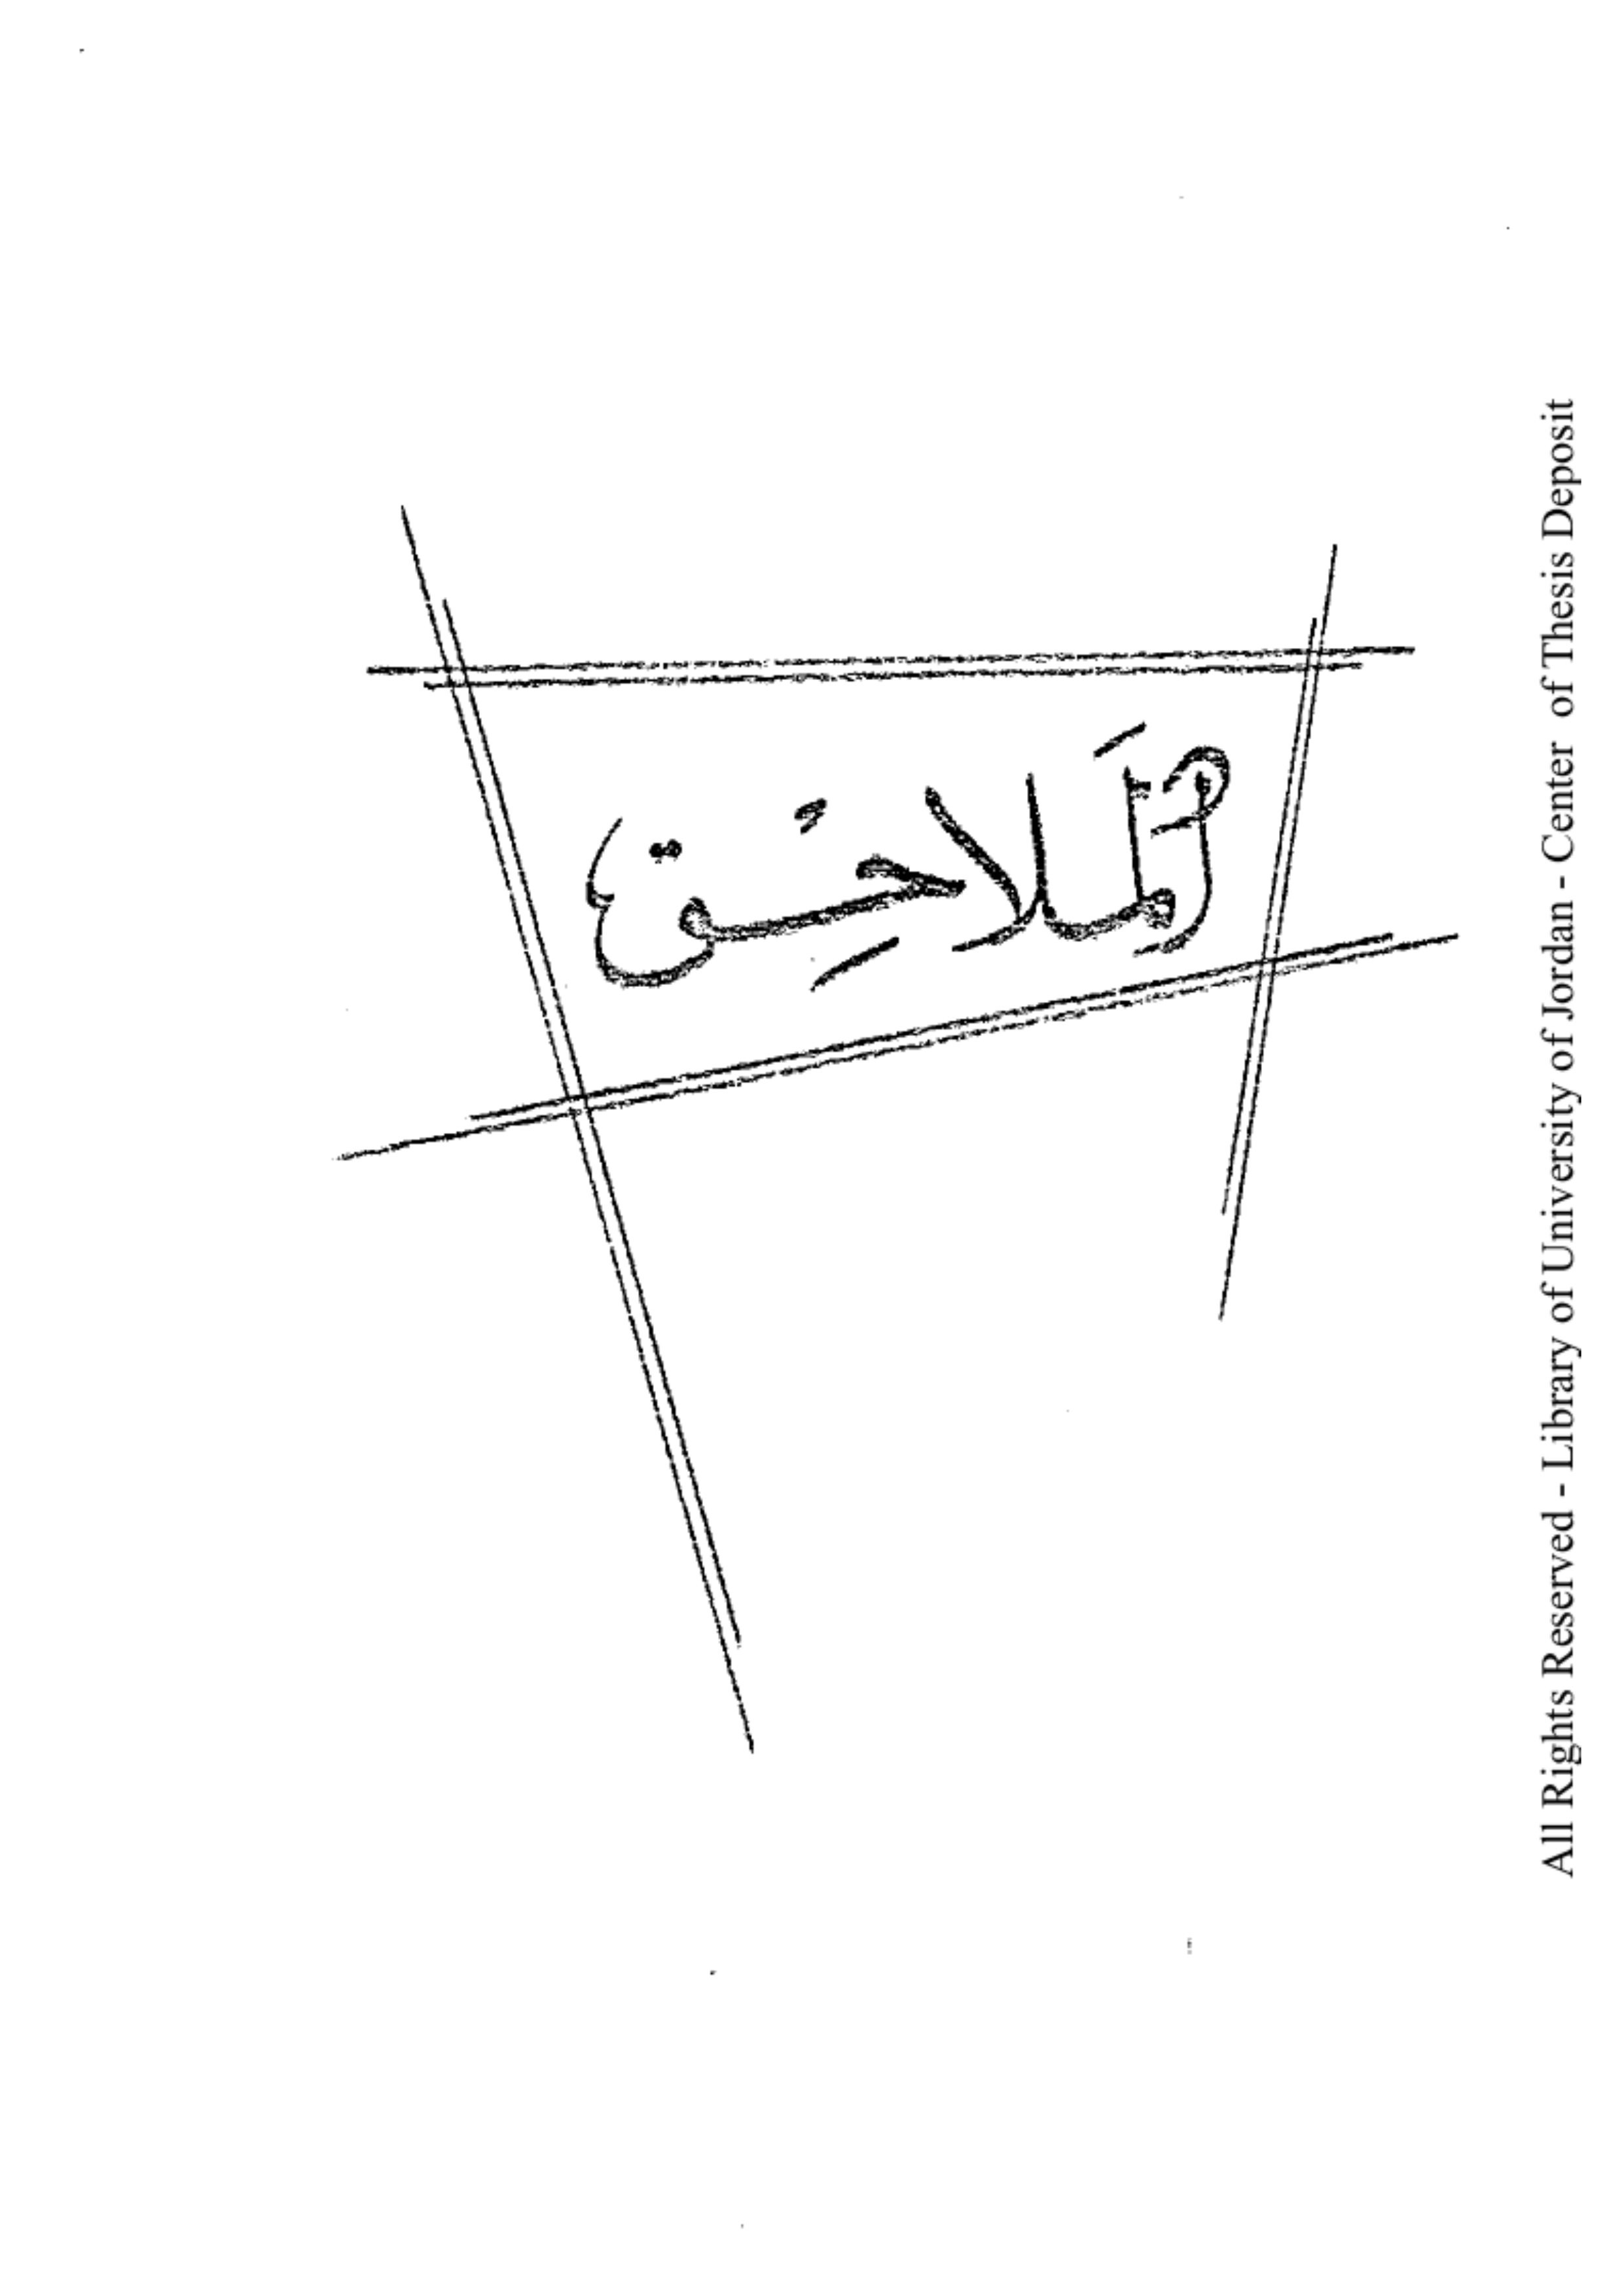 المَلاحِق
All Rights Reserved - Library of University of Jordan - Center of Thesis Deposit